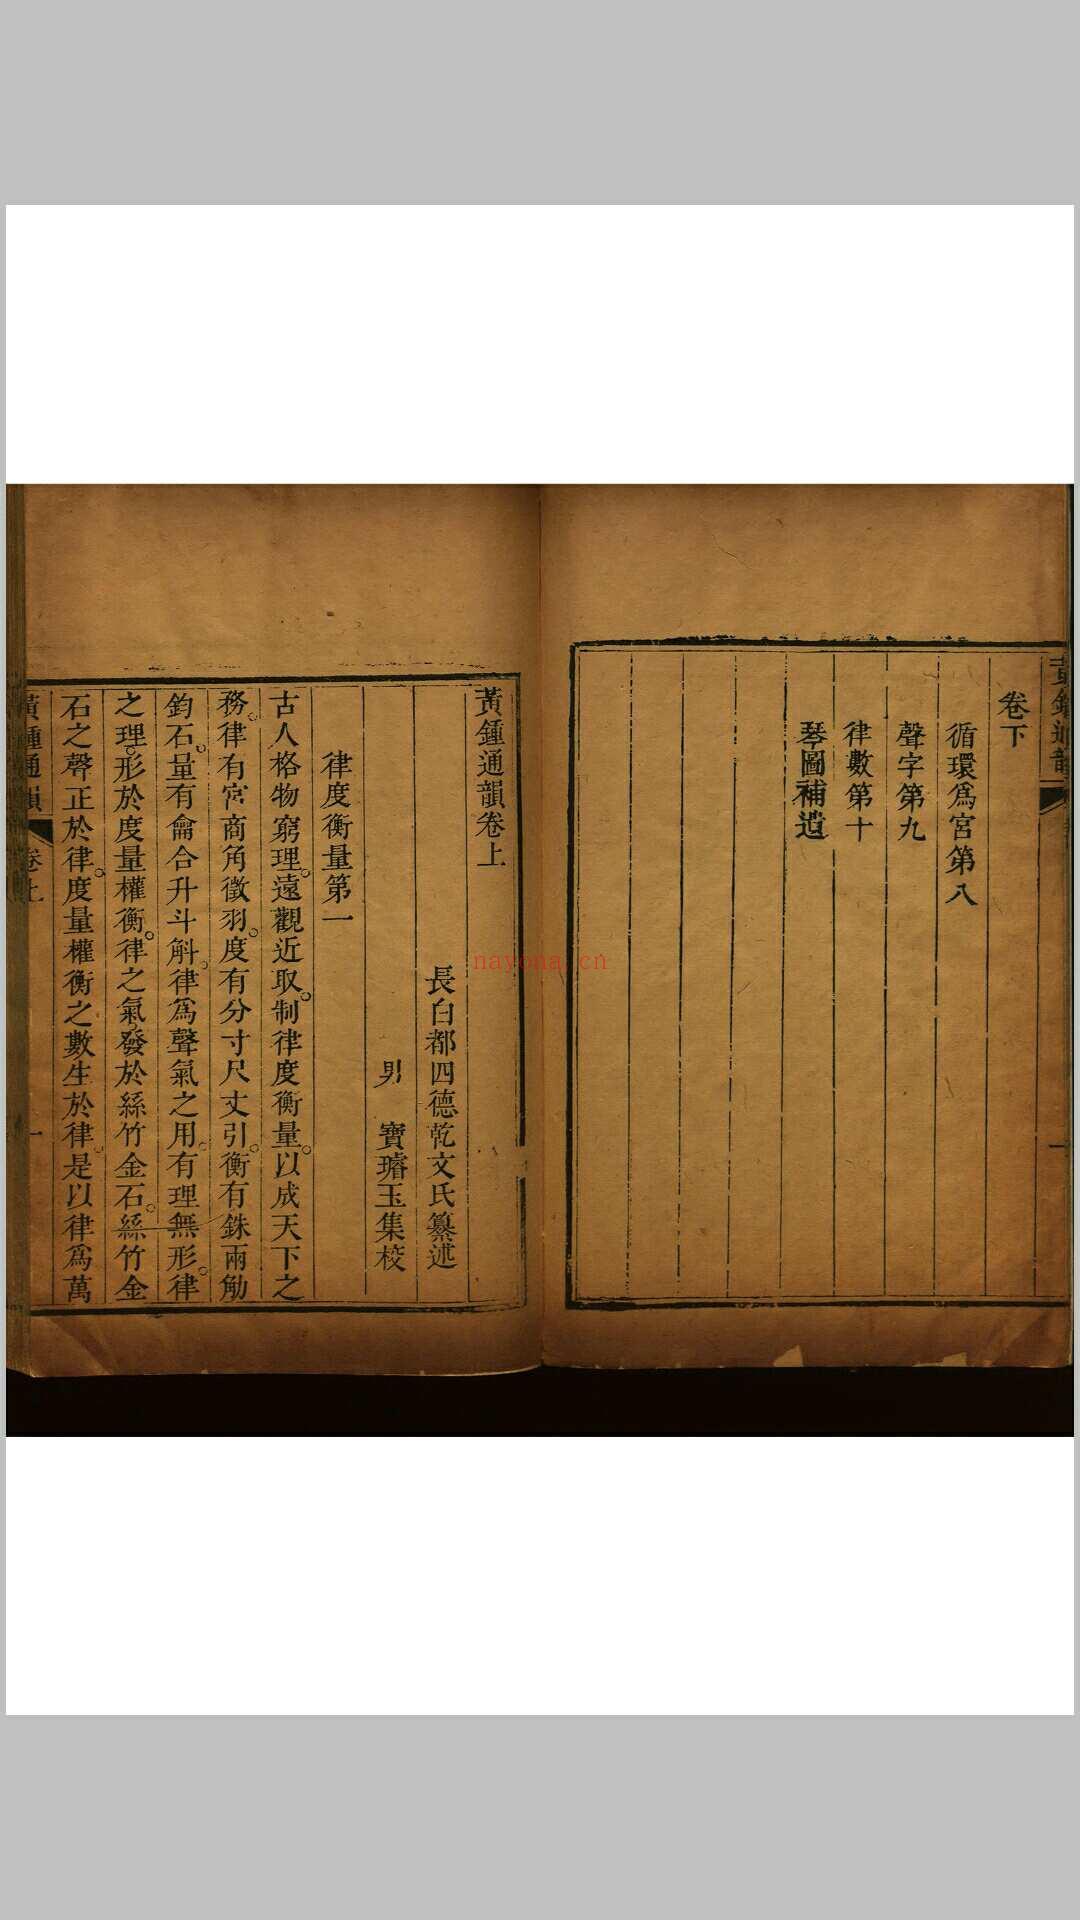 黃鍾通韻
卷下
循環爲宮第八
聲字第九
律數第十
琴圖補遺
一
黃鍾通韻卷上
長白都四德乾文氏纂述
男　寶璿玉集校
律度衡量第一
古人格物窮理。遠觀近取。制律度衡量。以成天下之
務。律有宮商角徵羽。度有分寸尺丈引。衡有銖兩觔
鈞石。量有龠合升斗斛。律爲聲氣之用。有理無形。律
之理。形於度量權衡。律之氣。發於絲竹金石。絲竹金
石之聲正於律。度量權衡之數生於律。是以律爲萬
黃鍾通韻
卷上
一
nayona.cn